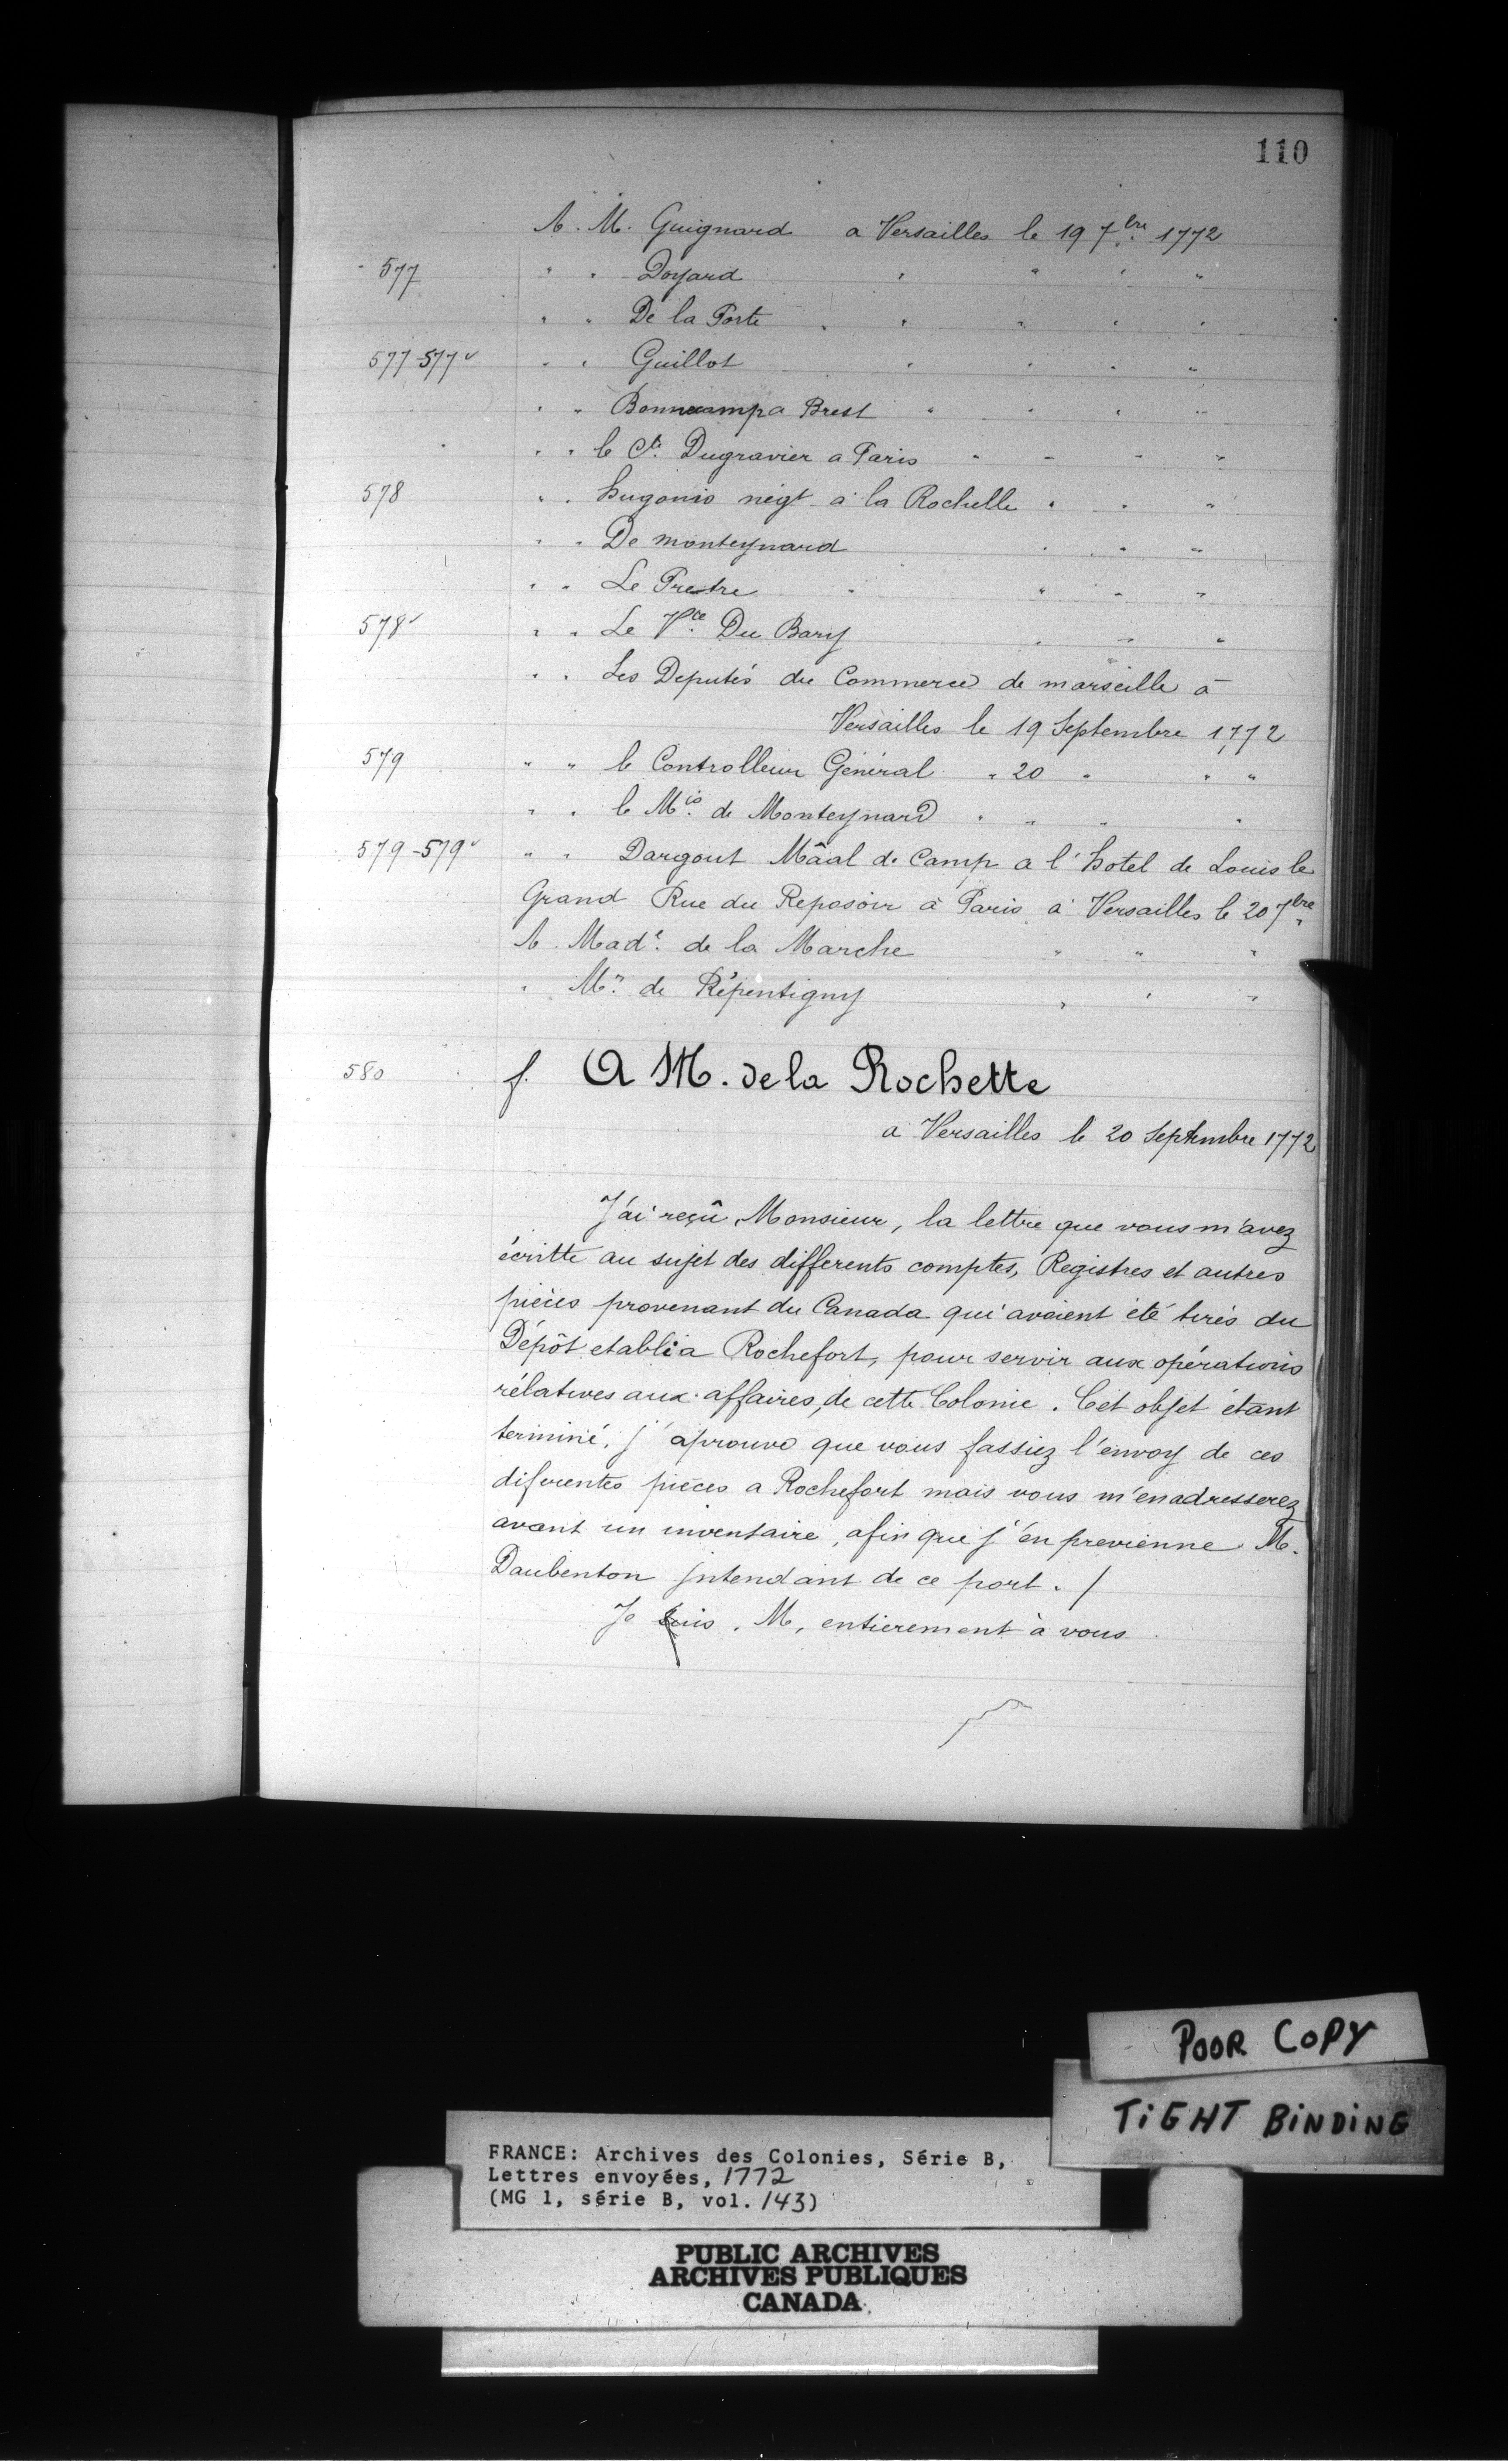 110
A. M. Guignard a Versailles le 19 7bre 1772
577 " " Doyard " " " "
" " De la Porte " " " " "
577-577v " " Guillot " " " "
" " Bonnecamp a Brest " " " "
" " le Cte. Dugravier a Paris " " " "
578 " " hugonis négt. à la Rochelle " " "
" " De monteynard " " "
" " Le Prestre " " " "
578v " " Le Vce. Du Bary " " "
" " Les Deputés du Commerce de marseille à
Versailles le 19 Septembre 1772
579 " " le Controlleur Général " 20 " " "
" " le Mis. de Monteynard " " " "
579-579v " " Dargout Mâal de Camp a l'hotel de Louis le
Grand Rue du Reposoir à Paris à Versailles le 20 7bre "
A. Made. de la Marche " " "
" Mr. de Répentigny " " "
580 f. A M. de la Rochette
a Versailles le 20 Septembre 1772
J'ai reçû, Monsieur, la lettre que vous m'avez
écritte au sujet des differents comptes, Registres et autres
pièces provenant du Canada qui avaient été tirés du
Dépôt etabli a Rochefort, pour servir aux opérations
rélatives aux affaires, de cette Colonie. Cet objet étant
terminé, j'aprouve que vous fassiez l'envoy de ces
diferentes pièces a Rochefort mais vous m'en adresserez
avant un inventaire, afin que j'en previenne M.
Daubenton Intendant de ce port. /
Je suis, M, entierement à vous
POOR COPY
TIGHT BINDING
FRANCE: Archives des Colonies, Série B,
Lettres envoyées, 1772
(MG 1, série B, vol. 143)
PUBLIC ARCHIVES
ARCHIVES PUBLIQUES
CANADA